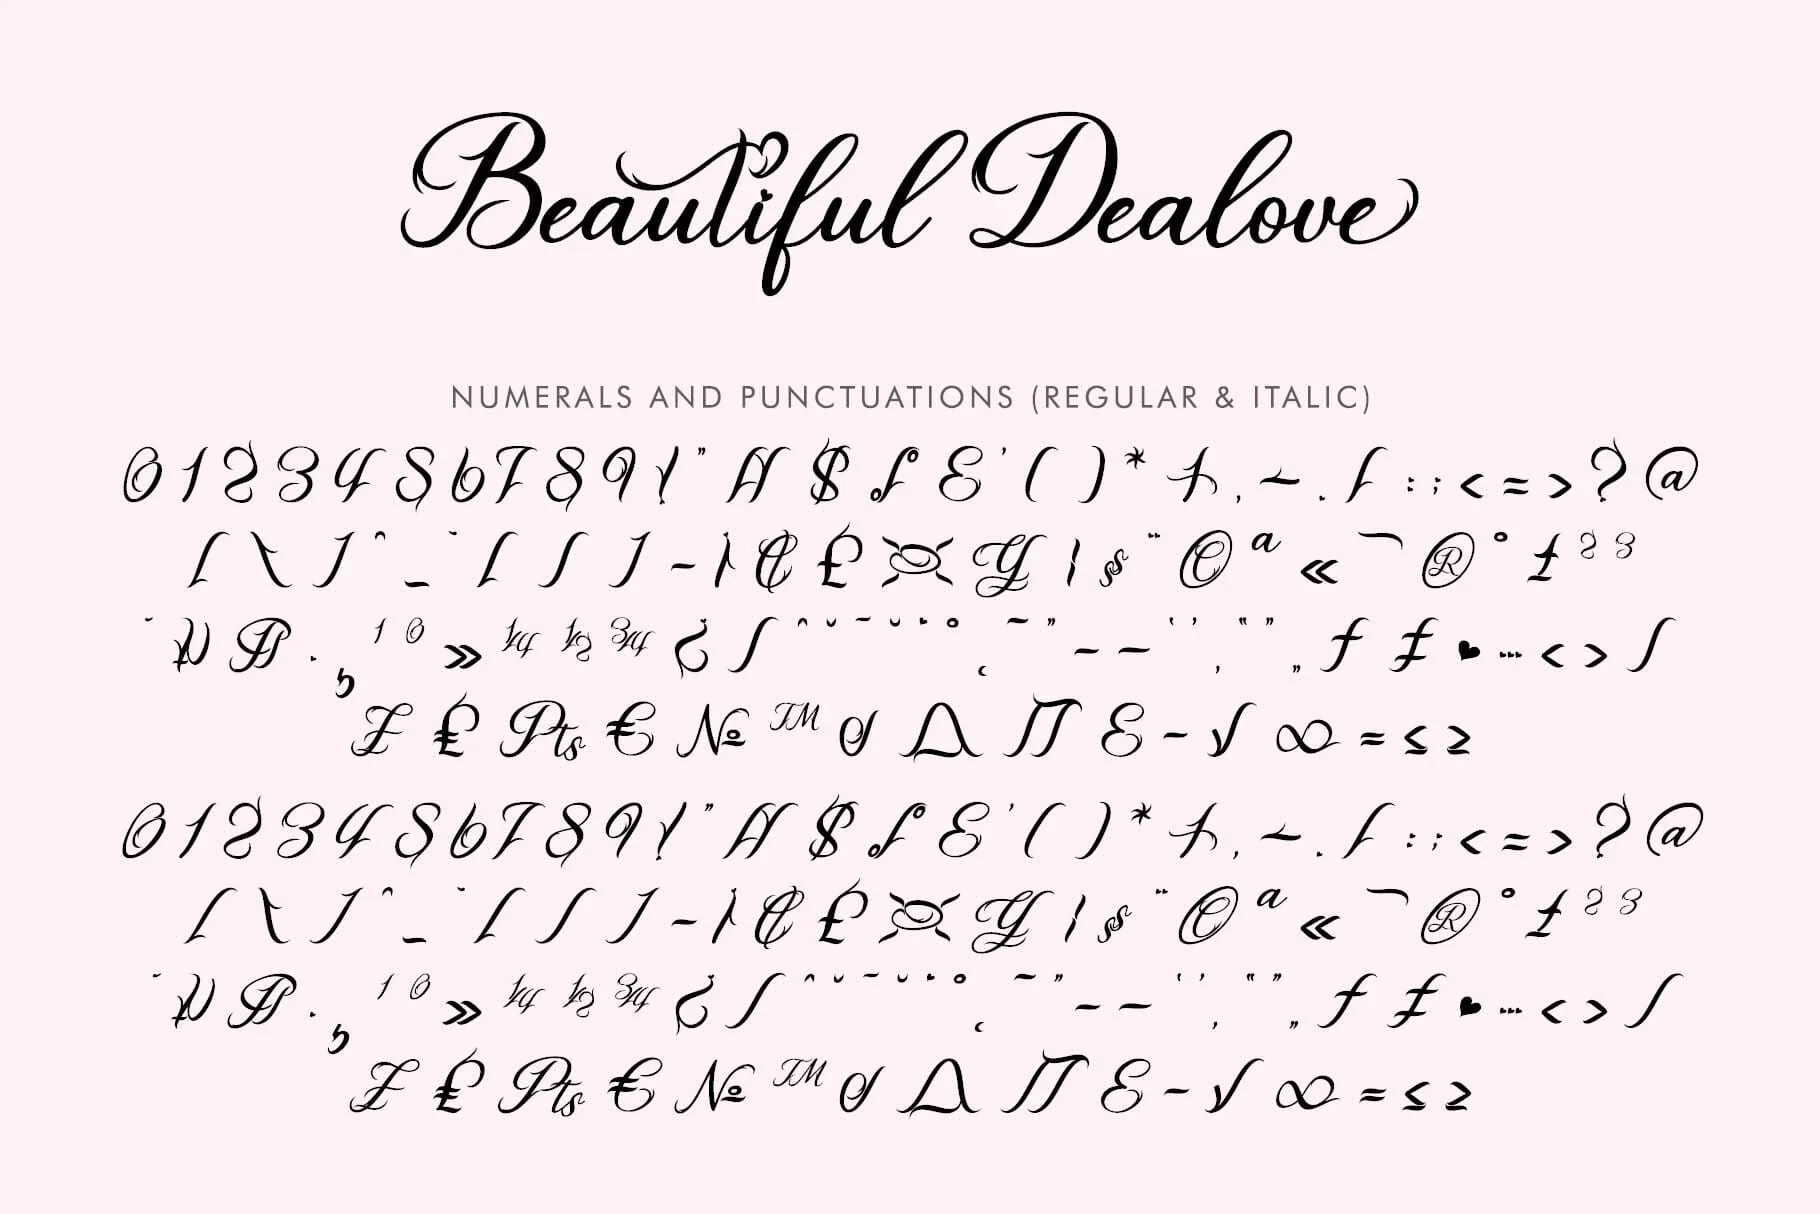 Beautiful Dealove
NUMERALS AND PUNCTUATIONS (REGULAR & ITALIC)
0 1 2 3 4 5 6 7 8 9 ! " # $ % & ' ( ) * + , - . / : ; < = > ? @
[ \ ] ^ _ ` { | } ~ ¡ ¢ £ ¤ ¥ ¦ § ¨ © ª « ¯ ® ° ± ² ³
´ µ ¶ · ¸ ¹ º » ¼ ½ ¾ ¿ ſ ˆ ˇ ˉ ˘ ˙ ˚ ˛ ˜ ˝ – — ‘ ’ ‚ “ ” „ † ‡ • … ‹ › ⁄
₣ ₤ ₧ € № ™ ∂ ∆ ∏ ∑ − √ ∞ ≈ ≤ ≥
0 1 2 3 4 5 6 7 8 9 ! " # $ % & ' ( ) * + , - . / : ; < = > ? @
[ \ ] ^ _ ` { | } ~ ¡ ¢ £ ¤ ¥ ¦ § ¨ © ª « ¯ ® ° ± ² ³
´ µ ¶ · ¸ ¹ º » ¼ ½ ¾ ¿ ſ ˆ ˇ ˉ ˘ ˙ ˚ ˛ ˜ ˝ – — ‘ ’ ‚ “ ” „ † ‡ • … ‹ › ⁄
₣ ₤ ₧ € № ™ ∂ ∆ ∏ ∑ − √ ∞ ≈ ≤ ≥